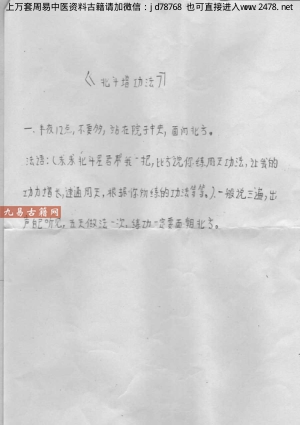 上万套周易中医资料古籍请加微信：jd78768 也可直接进入www.2478.net
《北斗增功法》
一、半夜12点，不要多，站在院子中央，面向北方。
法语：（亲亲北斗星君帮我一把，比方说你练周天功法，让我的
功力增长，速通周天，根据你所练的功法等等。）一般说三遍，
九易古籍网
每天做法一次，练功一定要面朝北方。